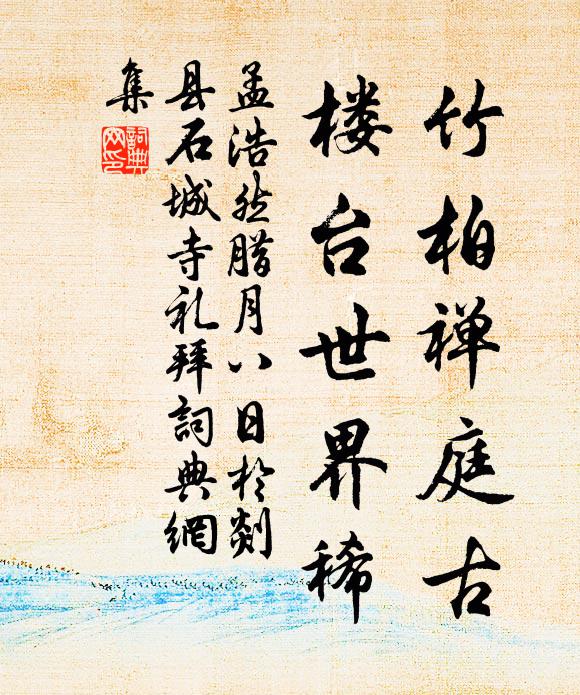 竹柏禅庭古
楼台世界稀
孟浩然腊月八日於剡
县石城寺礼拜詞典網
集
詞典
网印